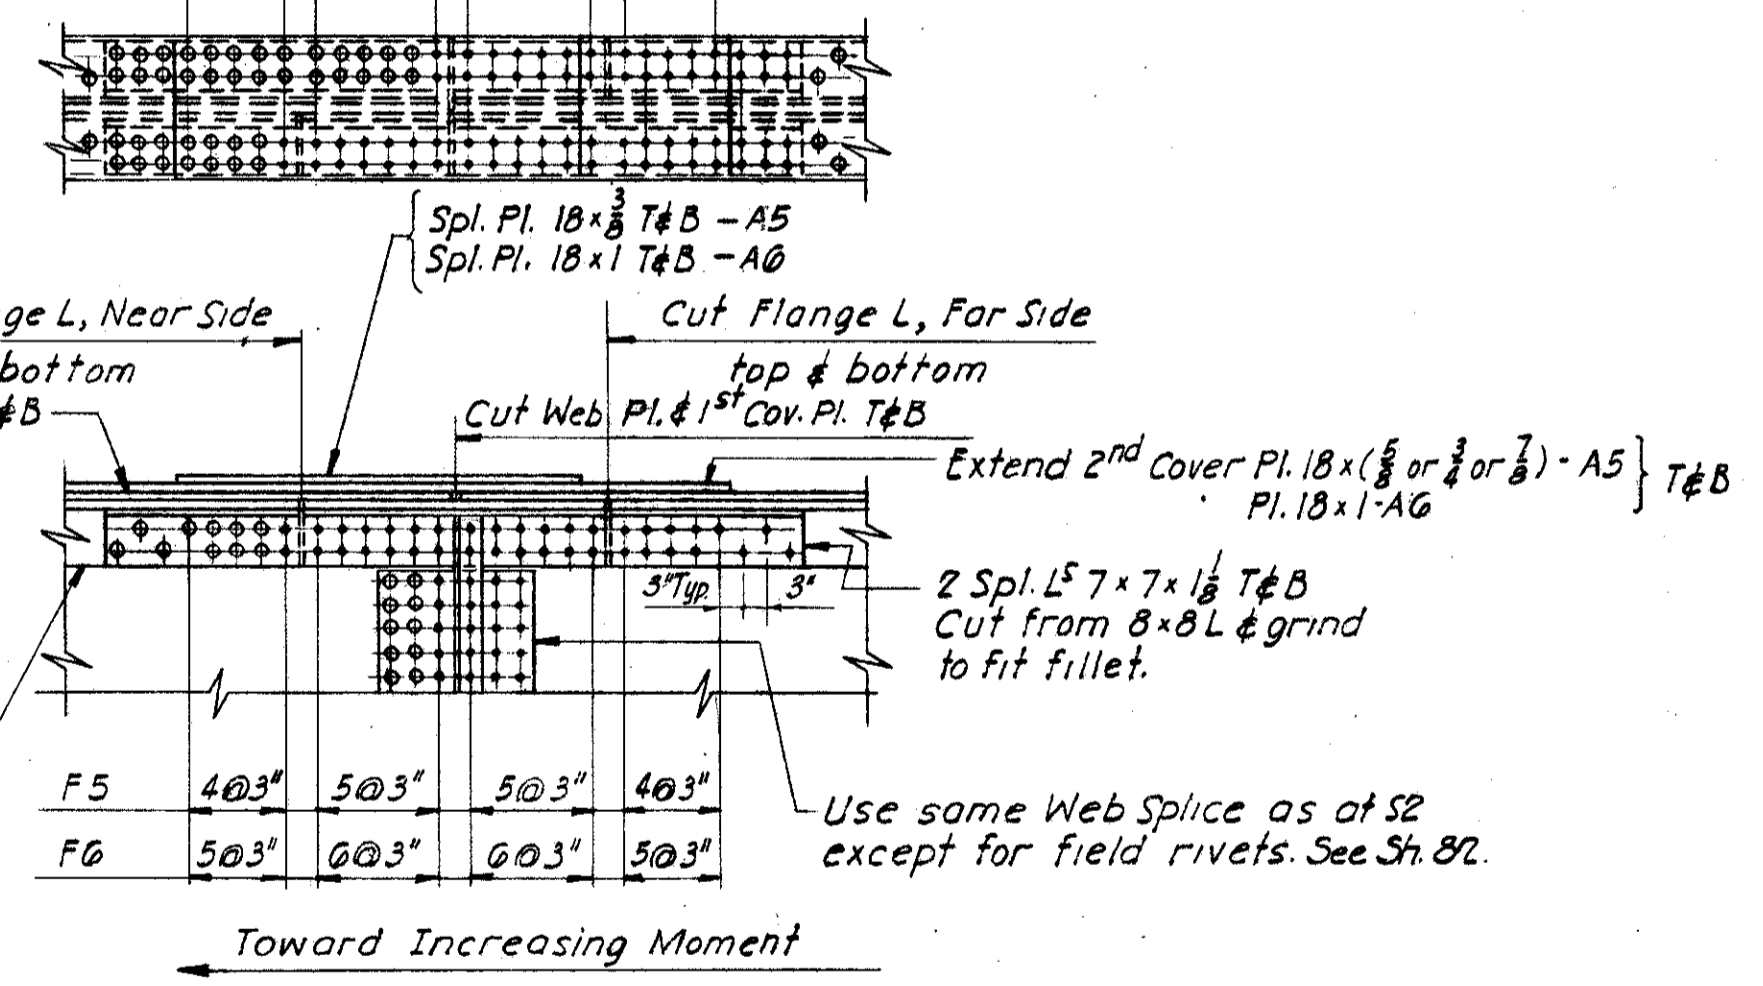 Spl. Pl. 18 x 3/8 T&B - A5
Spl. Pl. 18 x 1 T&B - A6
ge L, Near Side
bottom
&B
Cut Flange L, Far Side
top & bottom
Cut Web Pl. & 1st Cov. Pl. T&B
Extend 2nd Cover Pl. 18 x (5/8 or 3/4 or 7/8) - A5
Pl. 18 x 1 - A6
T&B
3" Typ. 3"
2 Spl. Ls 7 x 7 x 1 1/8 T&B
Cut from 8 x 8 L & grind
to fit fillet.
F5 4@3" 5@3" 5@3" 4@3"
F6 5@3" 6@3" 6@3" 5@3"
Use same Web Splice as at S2
except for field rivets. See Sh. 82.
Toward Increasing Moment